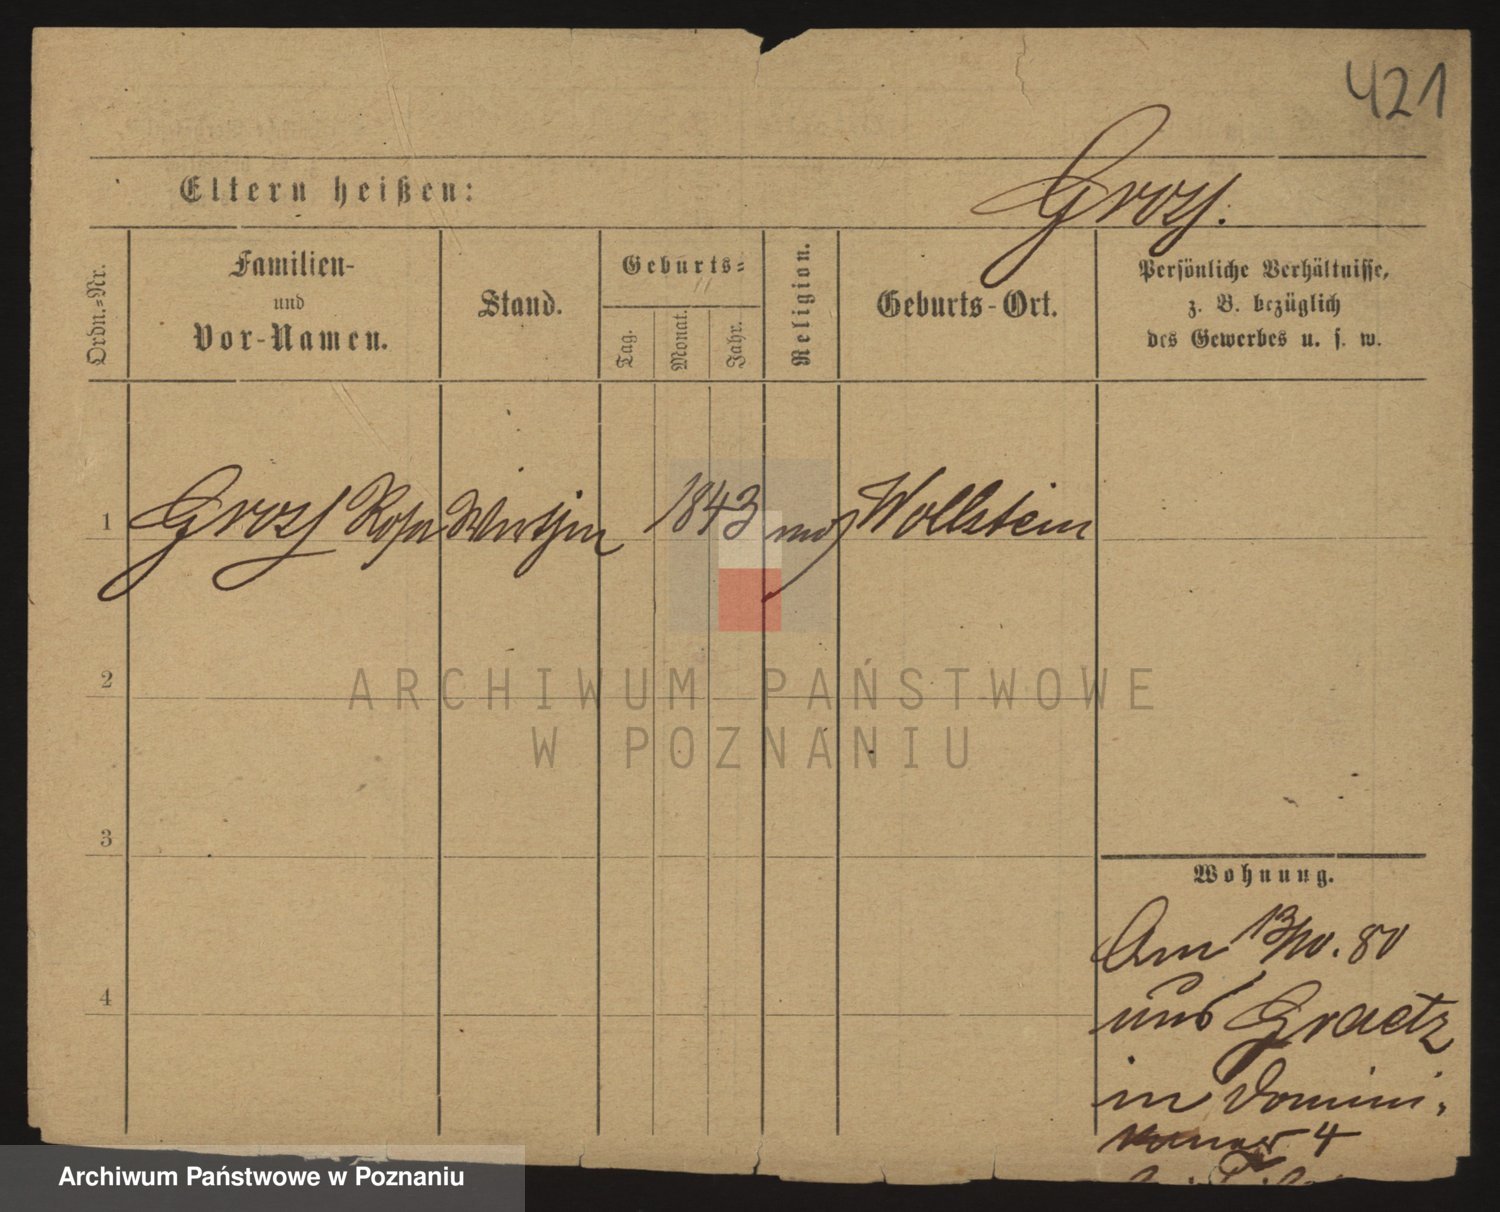 421
Eltern heißen:
Gross.
Ordn.-Nr.
Familien-
und
Vor-Namen.
Stand.
Geburts-
Tag.
Monat.
Jahr.
Religion.
Geburts-Ort.
Persönliche Verhältnisse,
z. B. bezüglich
des Gewerbes u. s. w.
1 Gross Rosa 1843 mos Wollstein
2
ARCHIWUM PAŃSTWOWE
W POZNANIU
3
Wohnung.
Am 13/10. 80
4
aus Graetz
in Domini-
kaner 4
Archiwum Państwowe w Poznaniu